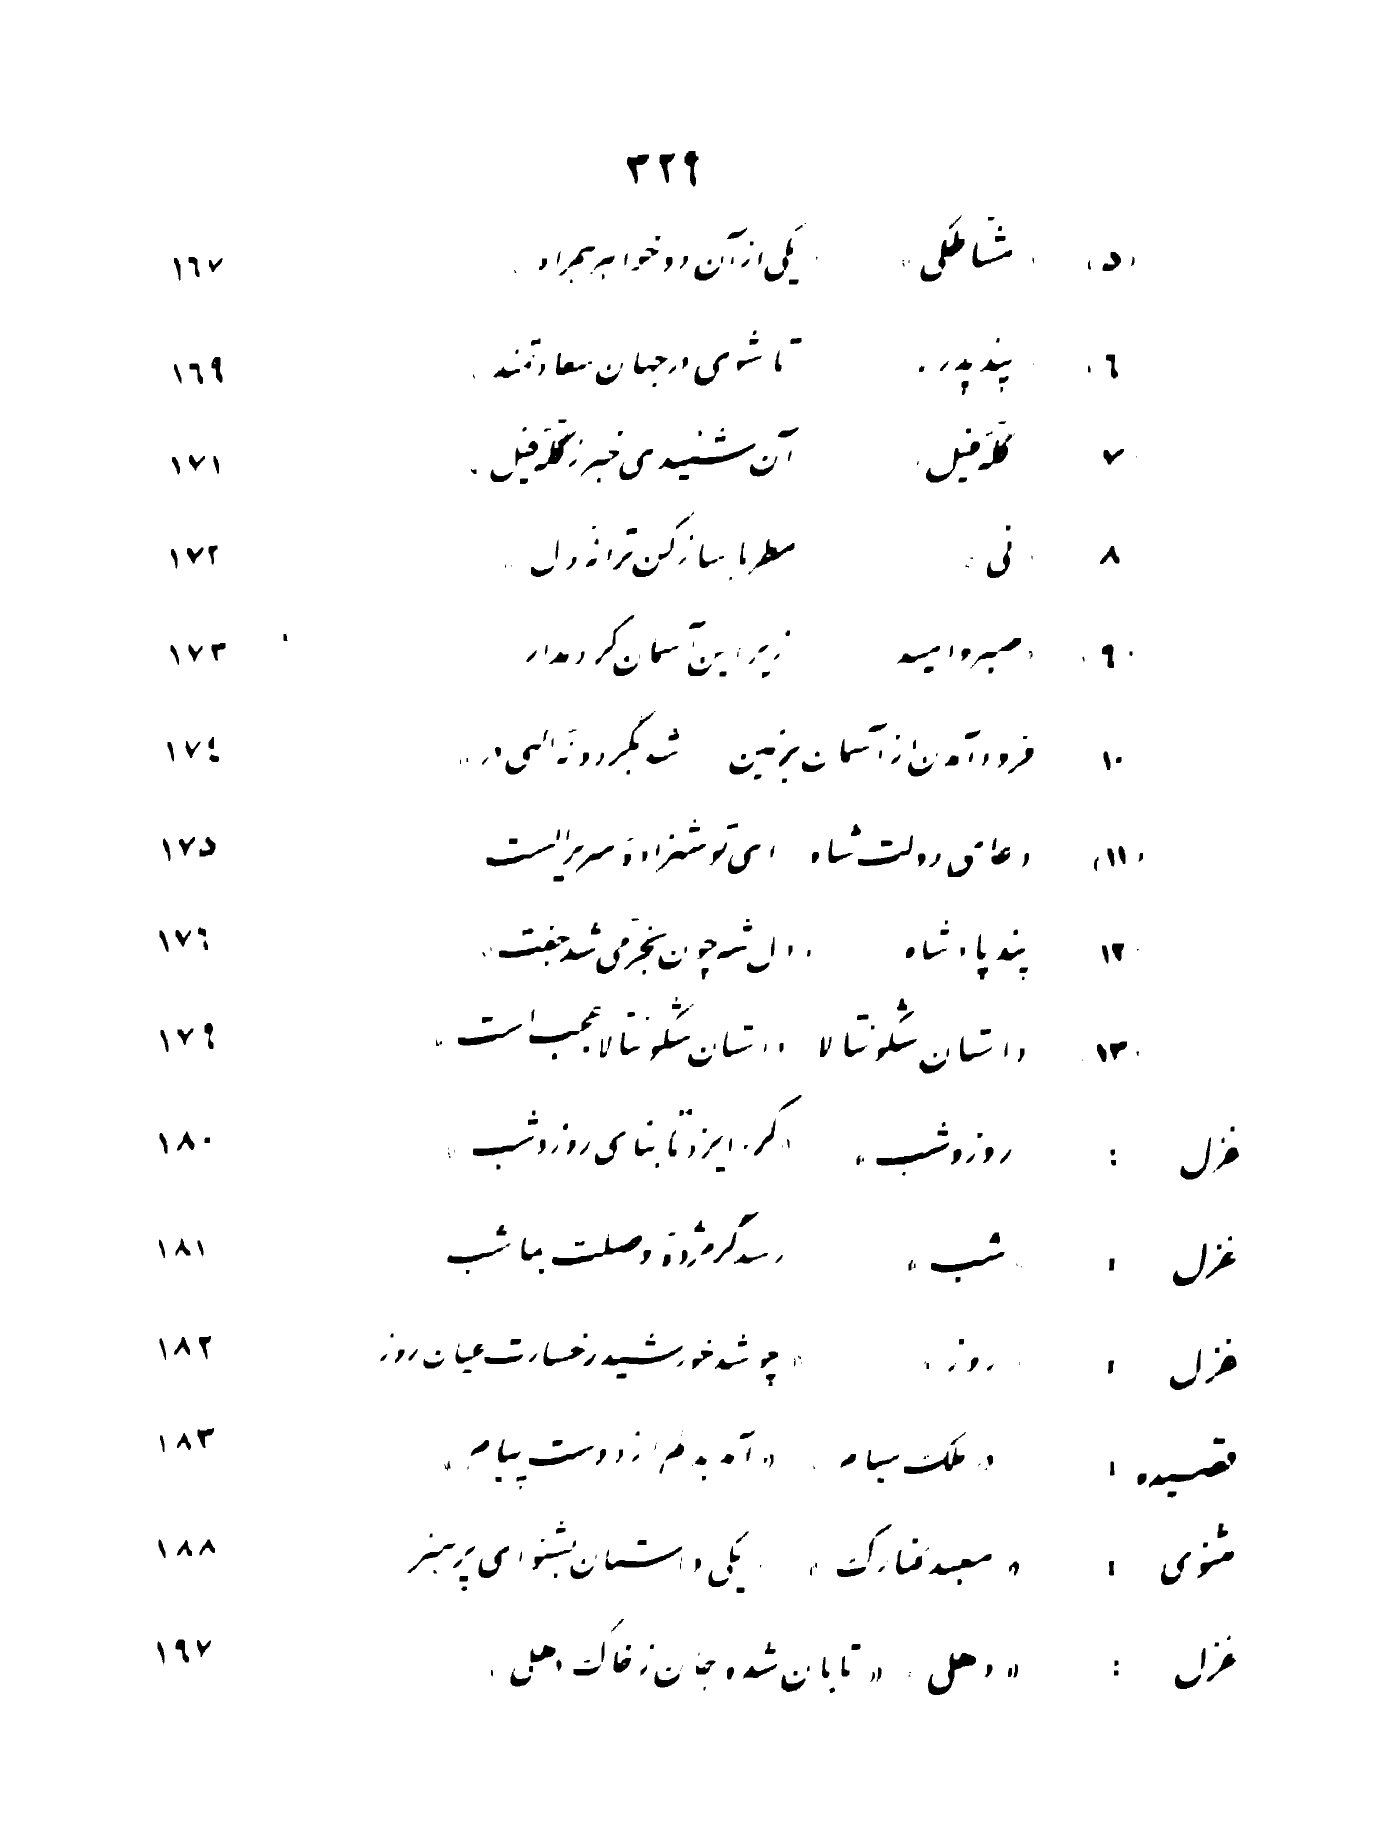 ٣٢٩
(٥) مشّاطگی « یکی از آن دو خواهر همراه » ١٦٧
(٦) « پند پدر » تا شوی در جهان سعادتمند » ١٦٩
٧ گلّهٔ فیل » آن شنیدی خبر ز گلّهٔ فیل » ١٧١
٨ « نی » مطربا ساز کن ترانهٔ دل » ١٧٢
(٩) « صبر و امید زیر این آسمان کرده مدار ١٧٣
١٠ فرود آمدن از آسمان بزمین شد بگردونهٔ الهی در » ١٧٤
(١١) دعای دولت شاه ای تو شهزادهٔ سریر الست ١٧٥
١٢ پند پادشاه « دل شه چون بخرّمی شد جفت » ١٧٦
(١٣) داستان شکونتالا « داستان شکونتالا عجب است » ١٧٩
غزل : روز و شب » « کرد ایزد تا بنای روز و شب » ١٨٠
غزل : « شب » رسد گر مژدهٔ وصلت بما شب ١٨١
غزل : « روز » « چو شد خورشید رخسارت عیان روز ١٨٢
قصیده : « ملک سیام » « آمد بدلم از دوست پیام » ١٨٣
مثنوی : « معبد غنارک » « یکی داستان بشنو ای پر هنر ١٨٨
غزل : « دهلی » « تابان شده جان ز خاک دهلی » ١٩٧